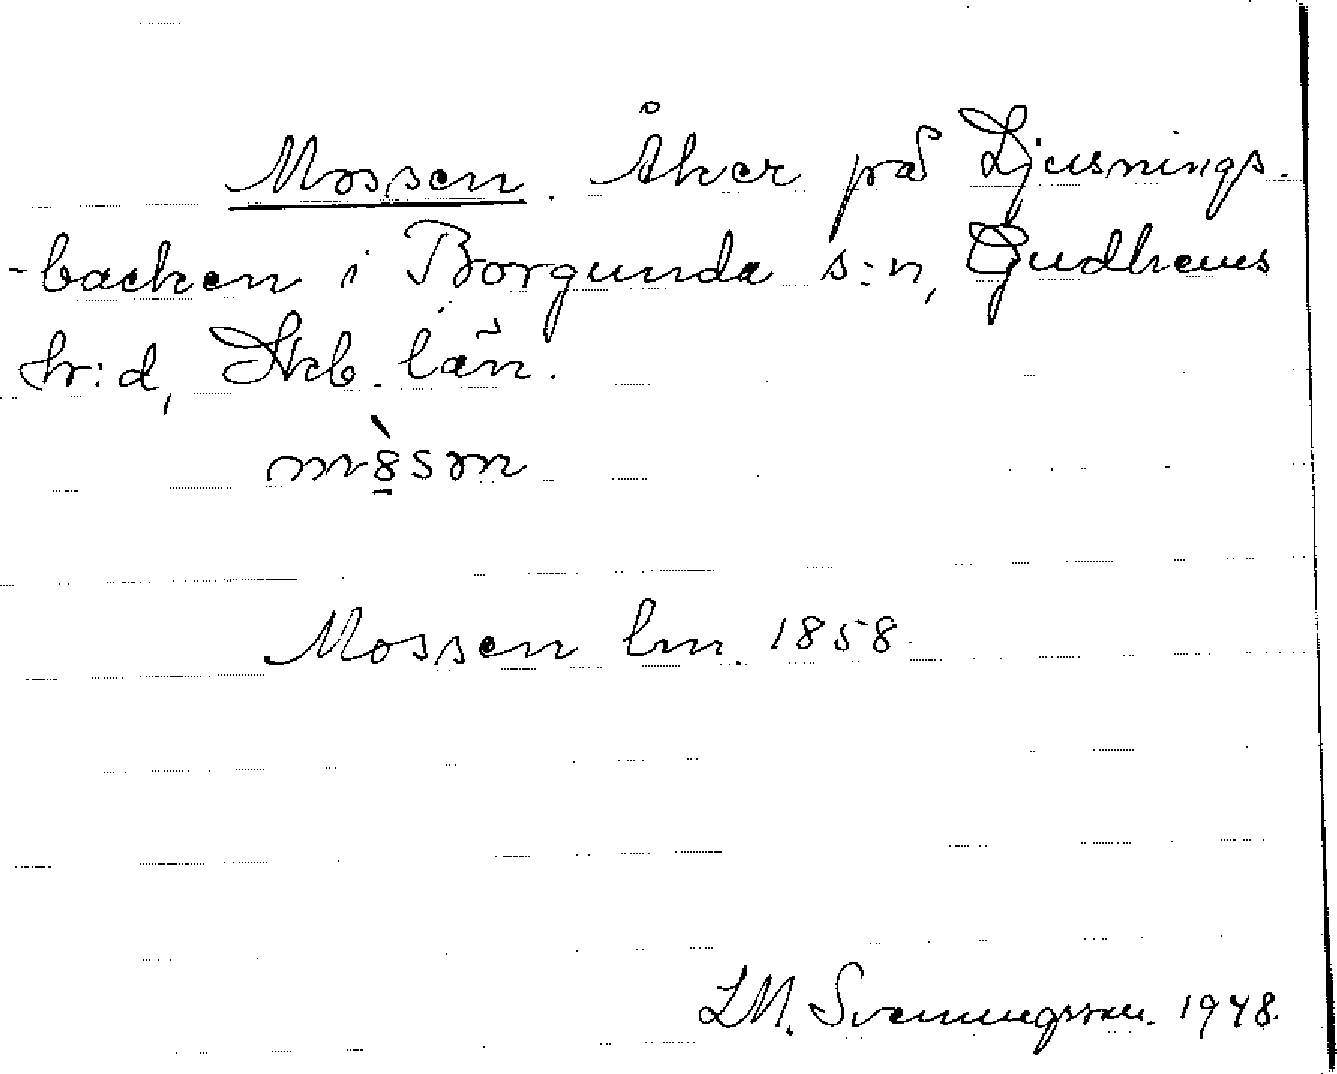 Mossen. Åker på Ljusnings-
-backen i Borgunda s:n, Gudhems
hr:d, Skb. län.
Mossen lm. 1858
LM. Svenningsson. 1948